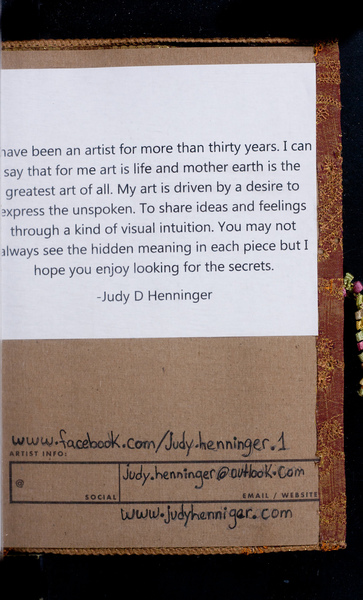 have been an artist for more than thirty years. I can
say that for me art is life and mother earth is the
greatest art of all. My art is driven by a desire to
express the unspoken. To share ideas and feelings
through a kind of visual intuition. You may not
always see the hidden meaning in each piece but I
hope you enjoy looking for the secrets.
-Judy D Henninger
www.facebook.com/judy.henninger.1
ARTIST INFO:
judy.henninger@outlook.com
@
SOCIAL
EMAIL / WEBSITE
www.judyhenniger.com